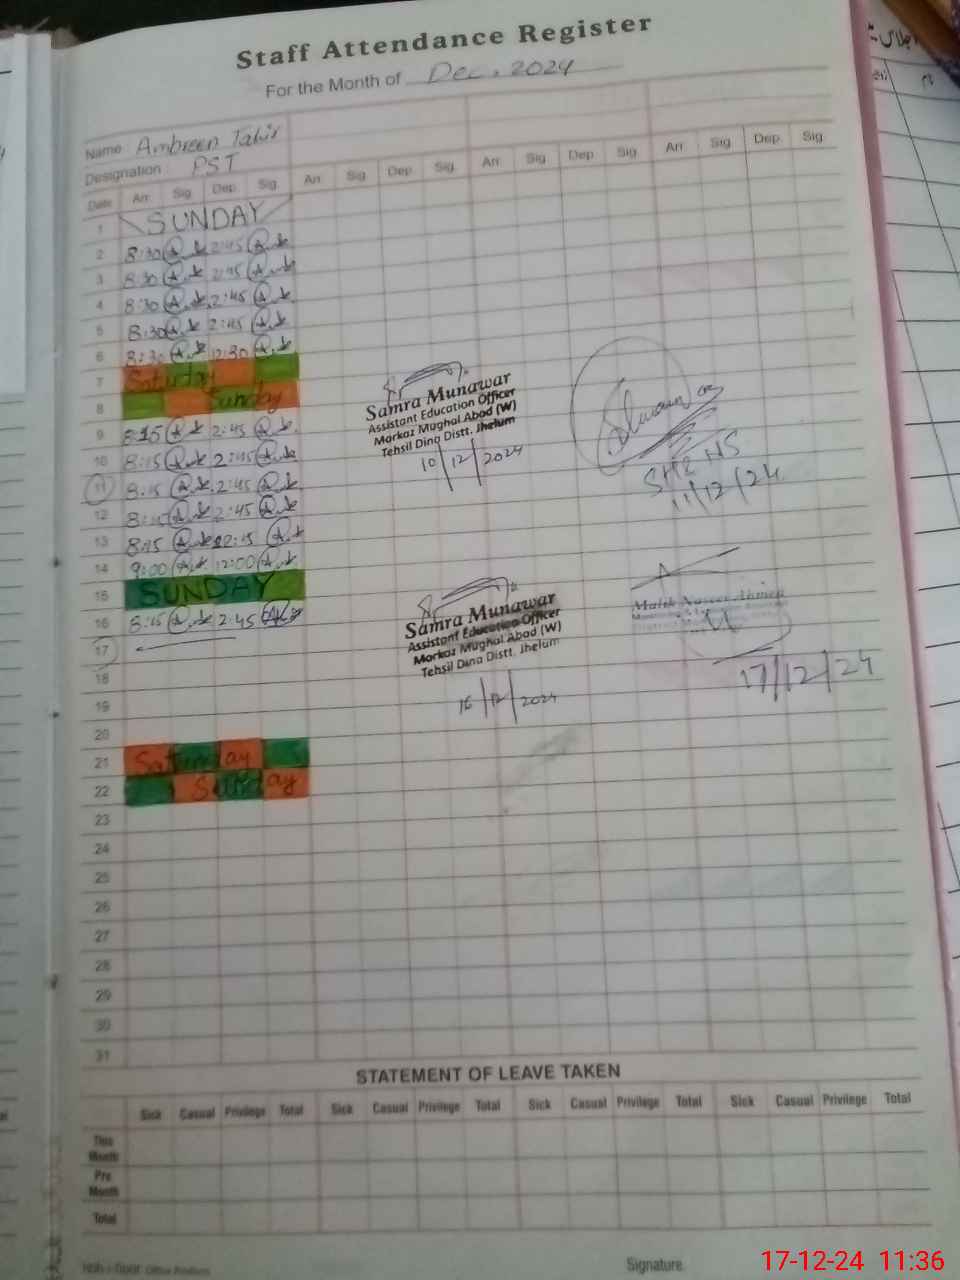 Staff Attendance Register
For the Month of Dec, 2024
Name: Ambreen Tahir
Designation: PST
Date Arr. Sig. Dep. Sig. Arr. Sig. Dep. Sig. Arr. Sig. Dep. Sig. Arr. Sig. Dep. Sig.
1 SUNDAY
2 8:30 2:45
3 8:30 2:45
4 8:30 2:45
5 8:30 2:45
6 8:30 12:30
7 Saturday
8 Sunday
Samra Munawar
Assistant Education Officer
Markaz Mughal Abad (W)
Tehsil Dina Distt. Jhelum
10/12/2024
11/12/24
9 8:15 2:45
10 8:15 2:45
11 8:15 2:45
12 8:15 2:45
13 8:15 12:15
14 9:00 12:00
15 SUNDAY
16 8:15 2:45
17
Samra Munawar
Assistant Education Officer
Markaz Mughal Abad (W)
Tehsil Dina Distt. Jhelum
16/12/2024
Malik Naseer Ahmed
17/12/24
18
19
20
21 Saturday
22 Sunday
23
24
25
26
27
28
29
30
31
STATEMENT OF LEAVE TAKEN
Sick Casual Privilege Total Sick Casual Privilege Total Sick Casual Privilege Total Sick Casual Privilege Total
This Month
Pre Month
Total
Signature.
17-12-24 11:36